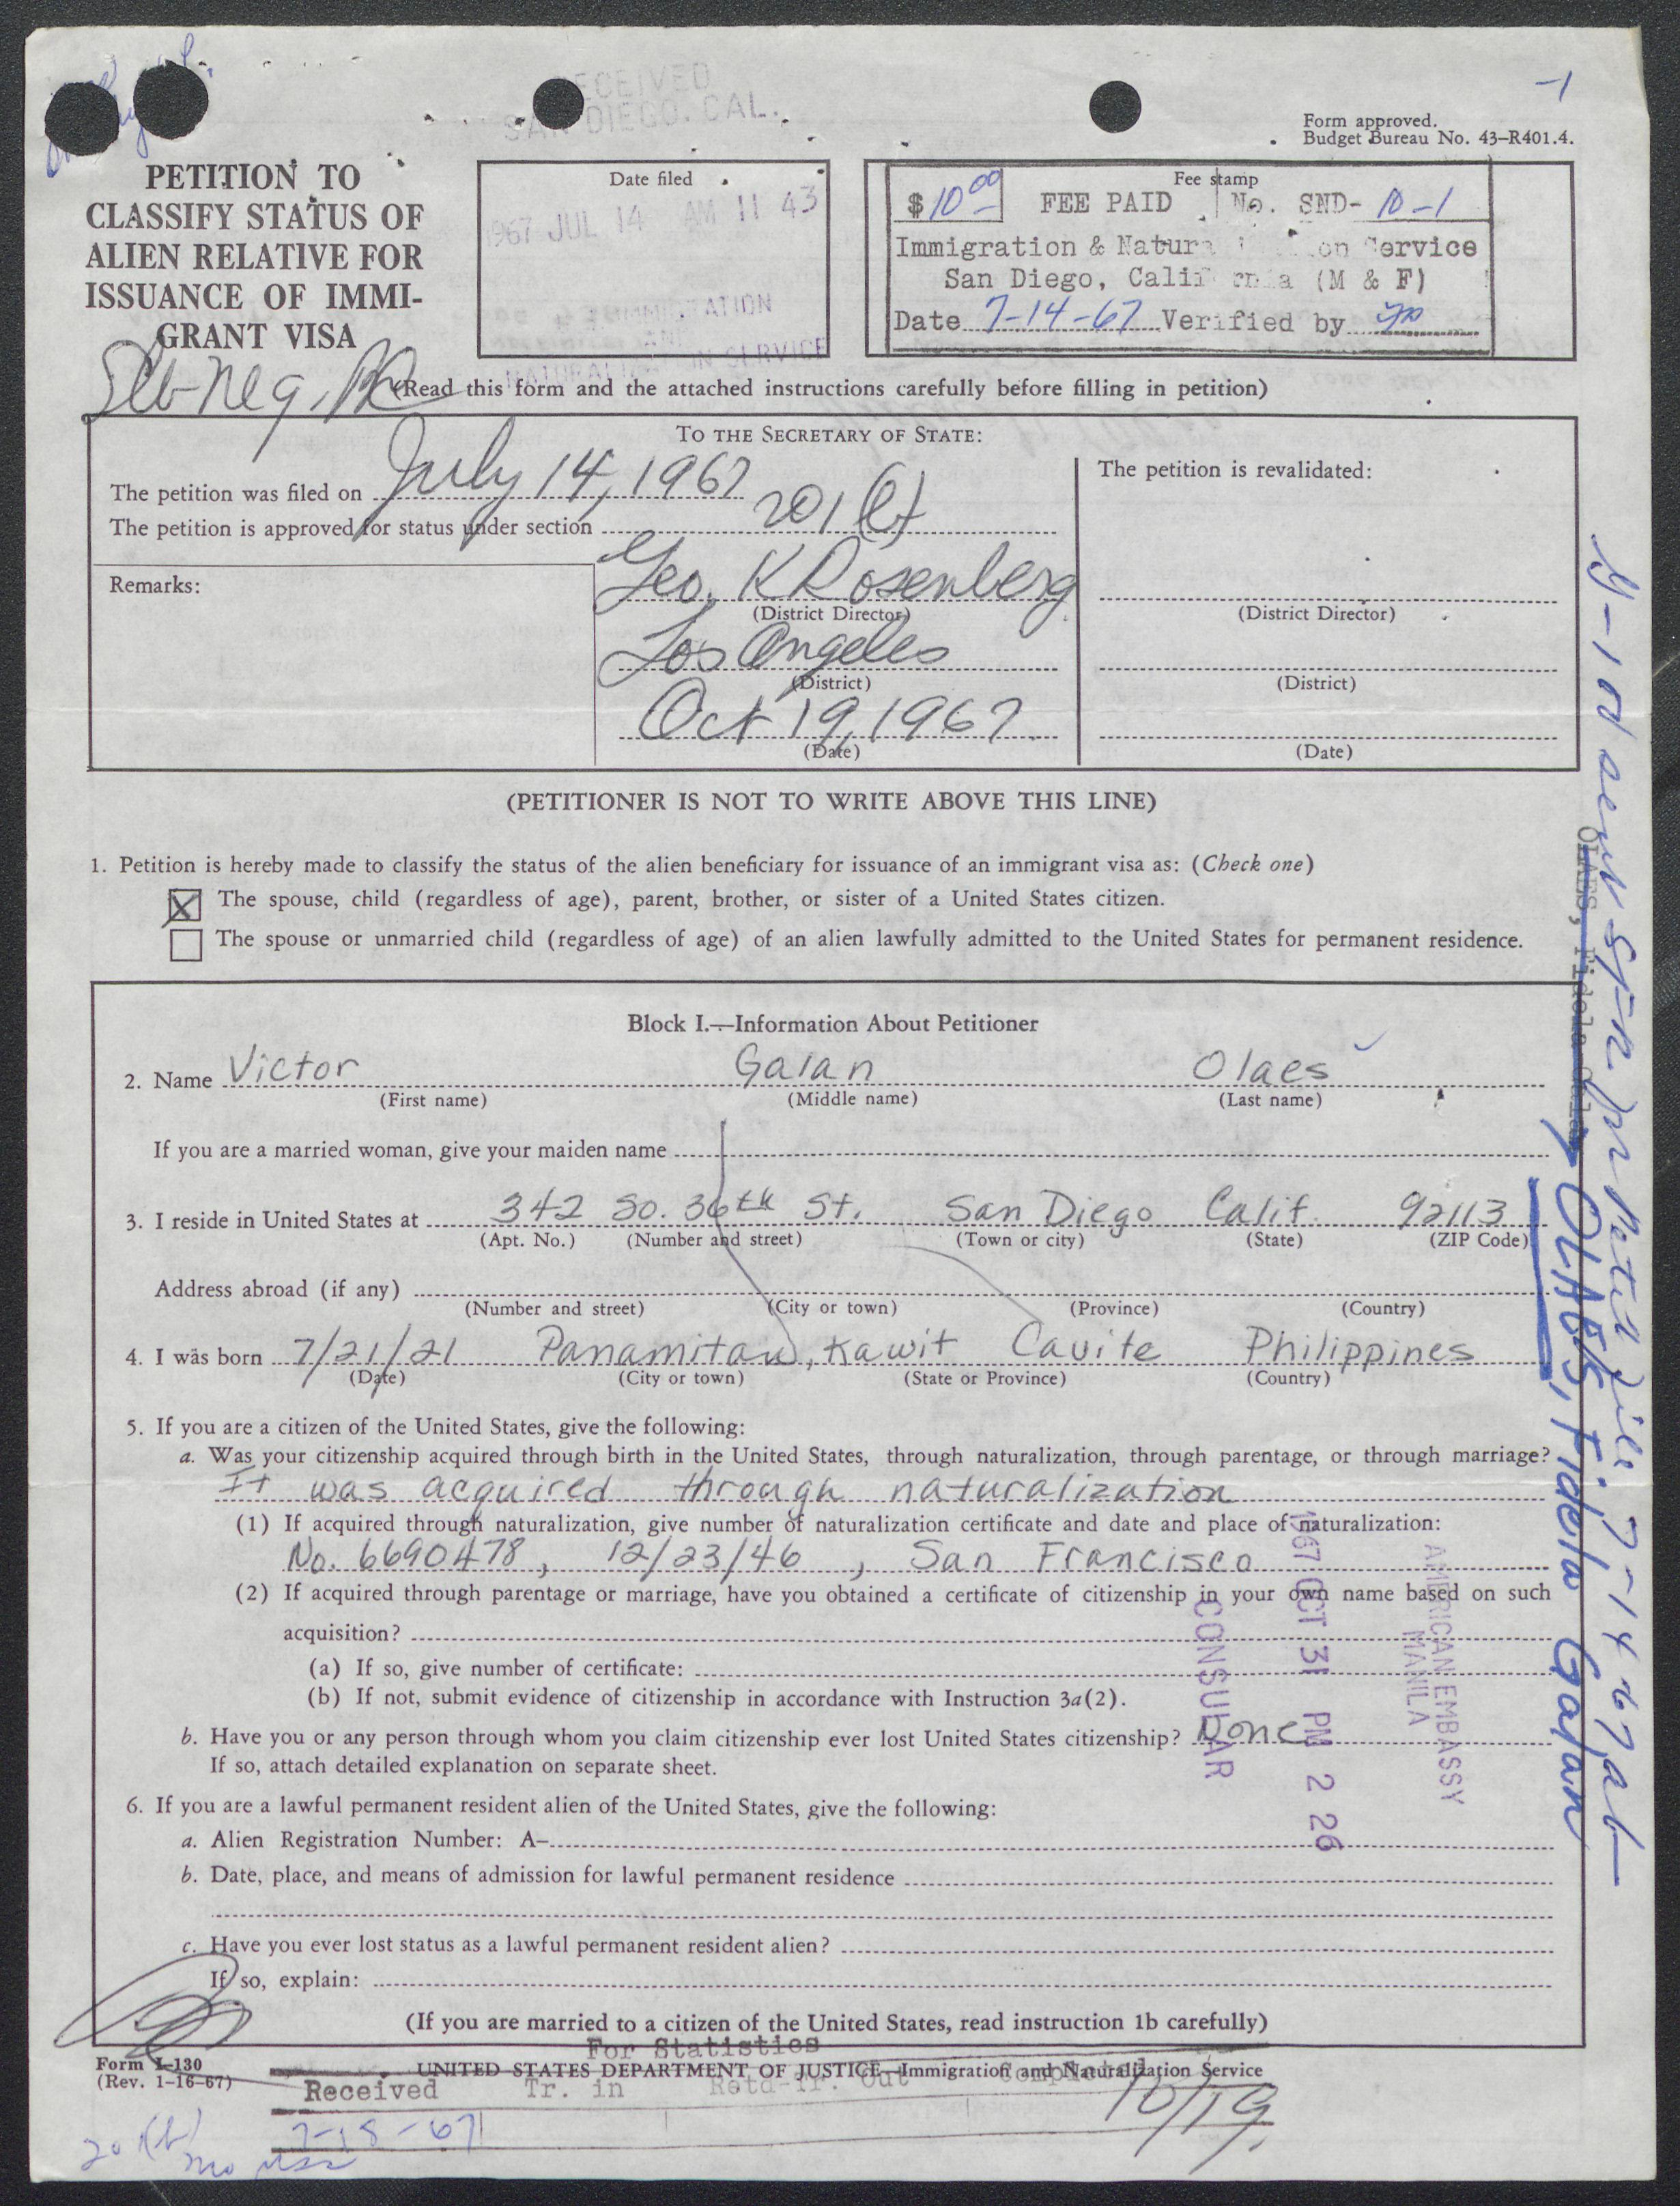 -1
RECEIVED
SAN DIEGO, CAL.
Form approved.
Budget Bureau No. 43–R401.4.
PETITION TO
CLASSIFY STATUS OF
ALIEN RELATIVE FOR
ISSUANCE OF IMMI-
GRANT VISA
Date filed
1967 JUL 14 AM 11 43
IMMIGRATION
AND
NATURALIZATION SERVICE
Fee stamp
$ 10 00 FEE PAID No. SND- 10-1
Immigration & Naturalization Service
San Diego, California (M & F)
Date 7-14-67 Verified by
(Read this form and the attached instructions carefully before filling in petition)
TO THE SECRETARY OF STATE:
The petition was filed on July 14, 1967
The petition is approved for status under section 201(b)
The petition is revalidated:
Remarks:
Geo. K Rosenberg
(District Director)
(District Director)
Los Angeles
(District)
(District)
Oct 19, 1967
(Date)
(Date)
(PETITIONER IS NOT TO WRITE ABOVE THIS LINE)
1. Petition is hereby made to classify the status of the alien beneficiary for issuance of an immigrant visa as: (Check one)
X The spouse, child (regardless of age), parent, brother, or sister of a United States citizen.
The spouse or unmarried child (regardless of age) of an alien lawfully admitted to the United States for permanent residence.
Block I.—Information About Petitioner
2. Name Victor Galan Olaes
(First name) (Middle name) (Last name)
If you are a married woman, give your maiden name
3. I reside in United States at 342 So. 36th St. San Diego Calif. 92113
(Apt. No.) (Number and street) (Town or city) (State) (ZIP Code)
Address abroad (if any)
(Number and street) (City or town) (Province) (Country)
4. I was born 7/21/21 Panamitan, Kawit Cavite Philippines
(Date) (City or town) (State or Province) (Country)
5. If you are a citizen of the United States, give the following:
a. Was your citizenship acquired through birth in the United States, through naturalization, through parentage, or through marriage?
It was acquired through naturalization
(1) If acquired through naturalization, give number of naturalization certificate and date and place of naturalization:
No. 6690478, 12/23/46, San Francisco
(2) If acquired through parentage or marriage, have you obtained a certificate of citizenship in your own name based on such
acquisition?
(a) If so, give number of certificate:
(b) If not, submit evidence of citizenship in accordance with Instruction 3a(2).
b. Have you or any person through whom you claim citizenship ever lost United States citizenship? None
If so, attach detailed explanation on separate sheet.
6. If you are a lawful permanent resident alien of the United States, give the following:
a. Alien Registration Number: A–
b. Date, place, and means of admission for lawful permanent residence
c. Have you ever lost status as a lawful permanent resident alien?
If so, explain:
(If you are married to a citizen of the United States, read instruction 1b carefully)
For Statistics
Form I-130
(Rev. 1-16-67)
UNITED STATES DEPARTMENT OF JUSTICE—Immigration and Naturalization Service
Received Tr. in Retd-Tr. Out Completed
7-18-67
10/19
201(b)
AMERICAN EMBASSY
MANILA
1967 OCT 31 PM 2 26
CONSULAR
OLAES, Fidela Galan
OLAES, Fidela Galan